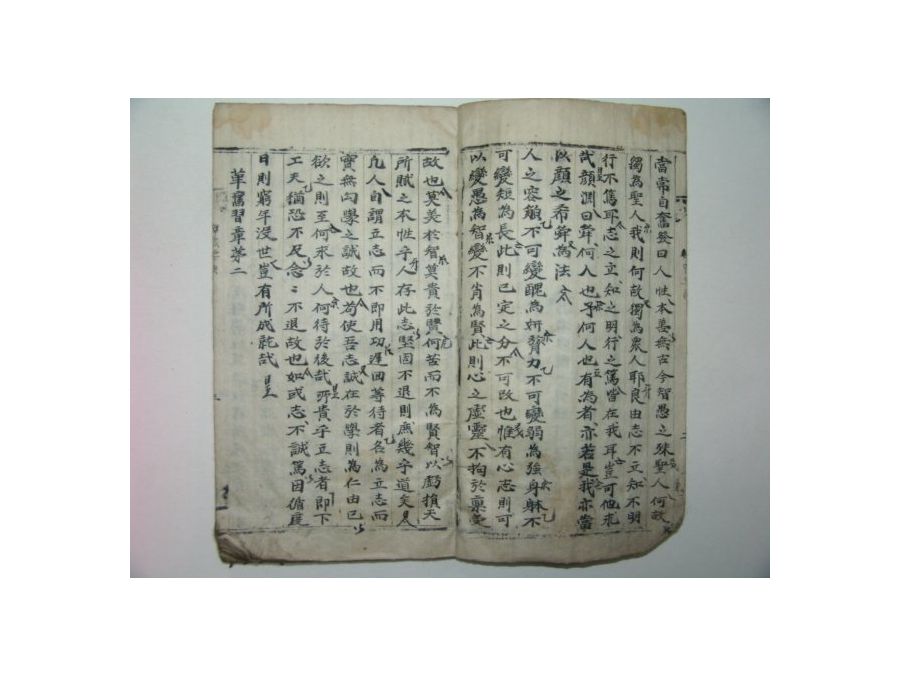 當常自奮發曰人性本善無古今智愚之殊聖人何故
獨為聖人我則何故獨為衆人耶良由志不立知不明
行不篤耳志之立知之明行之篤皆在我耳豈可他求
哉顔淵曰舜何人也予何人也有為者亦若是我亦當
以顔之希舜為法
人之容貌不可變醜為姸膂力不可變弱為強身軆不
可變短為長此則已定之分不可改也惟有心志則可
以變愚為智變不肖為賢此則心之虛靈不拘於稟受
故也莫美於智莫貴於賢何苦而不為賢智以虧損天
所賦之本性乎人存此志堅固不退則庶幾乎道矣
凡人自謂立志而不即用功遲回等待者名為立志而
實無向學之誠故也苟使吾志誠在於學則為仁由己
欲之則至何求於人何待於後哉所貴乎立志者即下
工夫猶恐不及念〻不退故也如或志不誠篤因循度
日則窮年沒世豈有所成就哉
革舊習章第二